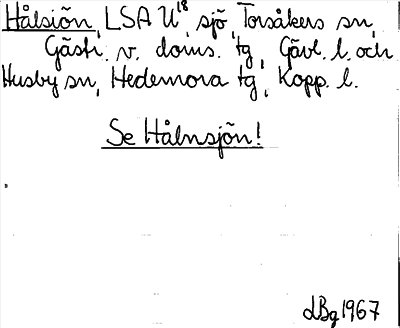 Hålsjön, LSA U¹⁸, sjö, Torsåkers sn,
Gästr. v. doms. tg, Gävl. l. och
Husby sn, Hedemora tg, Kopp. l.
Se Hålnsjön!
dBg 1967